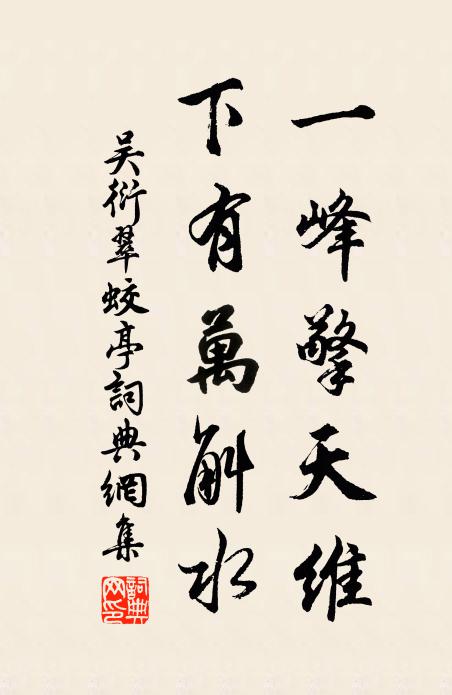 一峰擎天維
下有萬斛水
吳衍翠蛟亭詞典網集
詞典網印